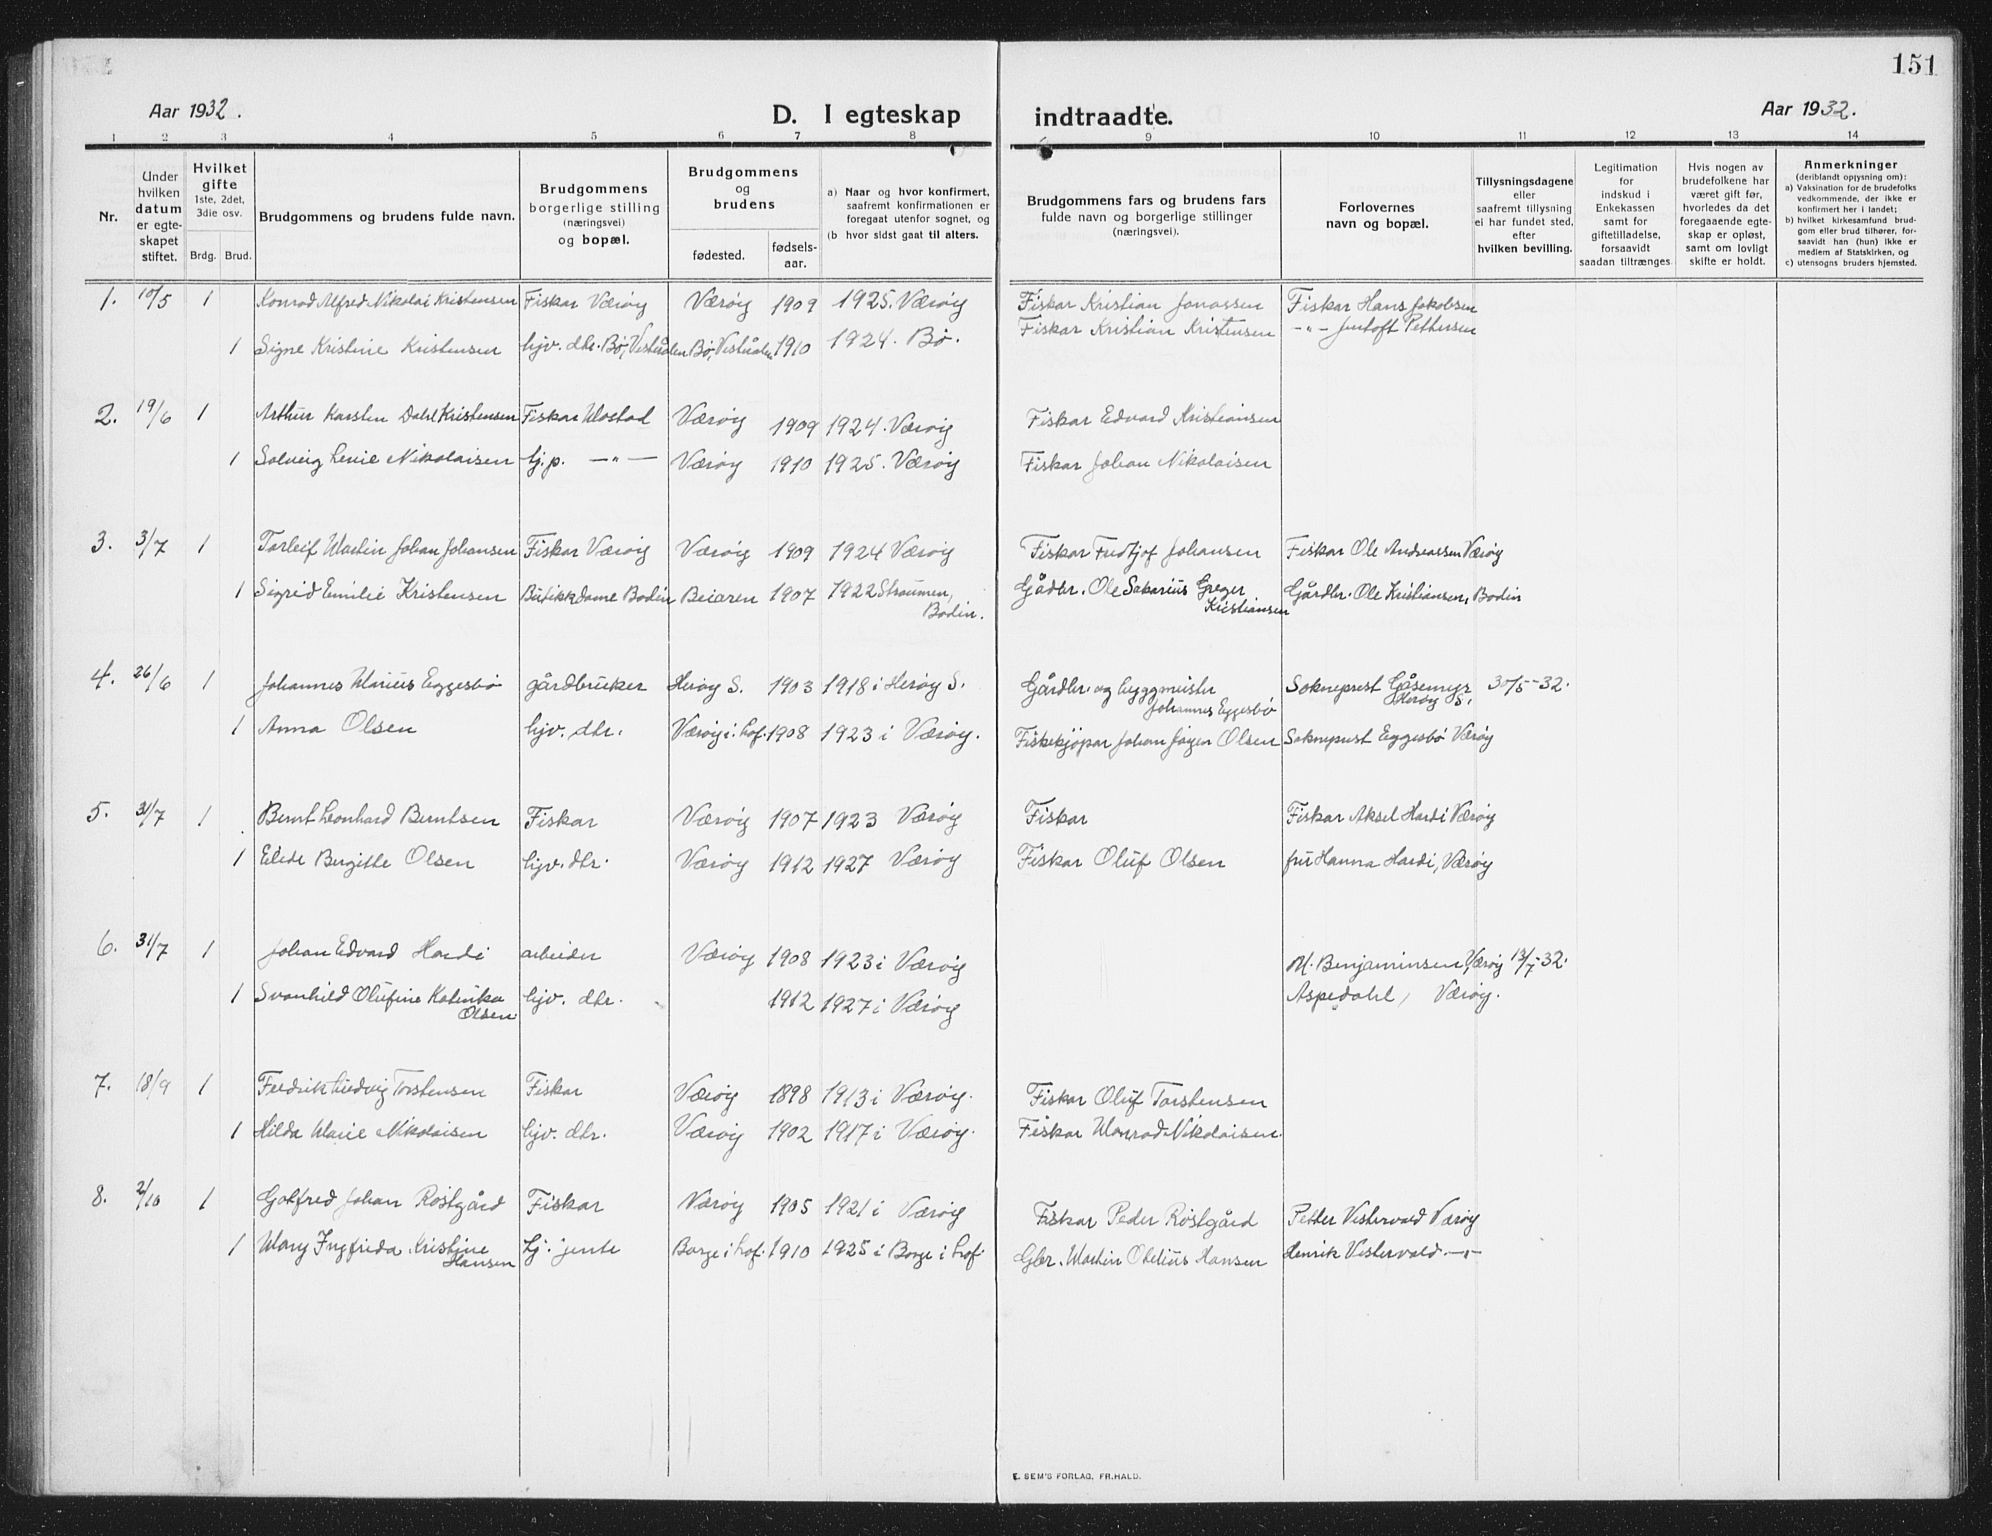 151
Aar 1932.
D. I egteskap indtraadte.
Aar 1932.
1 2 3 4 5 6 7 8 9 10 11 12 13 14
Nr.
Under hvilken datum er egteskapet stiftet.
Hvilket gifte 1ste, 2det, 3die osv.
Brdg. Brud.
Brudgommens og brudens fulde navn.
Brudgommens borgerlige stilling (næringsvei) og bopæl.
Brudgommens og brudens
fødested.
fødsels-aar.
a) Naar og hvor konfirmert, saafremt konfirmationen er foregaat utenfor sognet, og
(b hvor sidst gaat til alters.
Brudgommens fars og brudens fars fulde navn og borgerlige stillinger (næringsvei).
Forlovernes navn og bopæl.
Tillysningsdagene eller saafremt tillysning ei har fundet sted, efter hvilken bevilling.
Legitimation for indskud i Enkekassen samt for giftetilladelse, forsaavidt saadan tiltrænges
Hvis nogen av brudefolkene har været gift før, hvorledes da det foregaaende egteskap er opløst, samt om lovligt skifte er holdt.
Anmerkninger (deriblandt oplysning om):
a) Vaksination for de brudefolks vedkommende, der ikke er konfirmert her i landet;
b) hvilket kirkesamfund brudgom eller brud tilhører, forsaavidt han (hun) ikke er medlem af Statskirken, og
c) utensogns bruders hjemsted.
1. 10/5 1 Konrad Alfred Nikolai Kristensen Fiskar Værøy Værøy 1909 1925. Værøy Fiskar Kristian Jonassen Fiskar Hans Jakobsen
1 Signe Kristine Kristensen hjv. dtr. Bø, Vesterålen Bø, Vesterålen 1910 1924. Bø. Fiskar Kristian Kristensen —"— Jentoft Pettersen
2. 19/6 1 Arthur Karsten Dahl Kristensen Fiskar Mostad Værøy 1909 1924. Værøy Fiskar Edvard Kristiansen
1 Solveig Lenie Nikolaisen hj.p. —"— Værøy 1910 1925. Værøy Fiskar Johan Nikolaisen
3. 3/7 1 Torleif Martin Johan Johansen Fiskar Værøy Værøy 1909 1924 Værøy Fiskar Fridtjof Johansen Fiskar Ole Andreassen Værøy
1 Sigrid Emilie Kristensen Butikkdame Bodin Beiaren 1907 1922 Straumen, Bodin. Gårdbr. Ole Sakarius Greger Kristiansen Gårdbr. Ole Kristiansen, Bodin
4. 26/6 1 Johannes Marius Eggesbø gårdbruker Herøy S. 1903 1918 i Herøy S. Gårdbr. og byggmeister Johannes Eggesbø Sokneprest Gåsemyr Herøy S. 30/5-32.
1 Anna Olsen hjv. dtr. Værøy i Lof. 1908 1923 i Værøy. Fiskekjøpar Johan Jørgen Olsen Sokneprest Eggesbø Værøy
5. 31/7 1 Bernt Leonhard Berntsen Fiskar Værøy 1907 1923 Værøy Fiskar Fiskar Aksel Hardi Værøy
1 Elide Birgitte Olsen hjv. dtr. Værøy 1912 1927 Værøy Fiskar Oluf Olsen fru Hanna Hardi, Værøy
6. 31/7 1 Johan Edvard Hardi arbeider Værøy 1908 1923 i Værøy M. Benjaminsen, Værøy 13/7-32.
1 Svanhild Olufine Katinka Olsen hjv. dtr. 1912 1927 i Værøy Aspedahl, Værøy.
7. 18/9 1 Fredrik Ludvig Torstensen Fiskar Værøy 1898 1913 i Værøy. Fiskar Oluf Torstensen
1 Hilda Marie Nikolaisen hjv. dtr. Værøy 1902 1917 i Værøy. Fiskar Monrad Nikolaisen.
8. 2/10 1 Gotfred Johan Røstgård Fiskar Værøy 1905 1921 i Værøy Fiskar Peder Røstgård Petter Vestervold Værøy
1 Mary Ingfrida Kristine Hansen hj. jente Borge i Lof. 1910 1925 i Borge i Lof. Gbr. Martin Obelius Hansen Henrik Vestervold —"—
E. SEM'S FORLAG, FR.HALD.